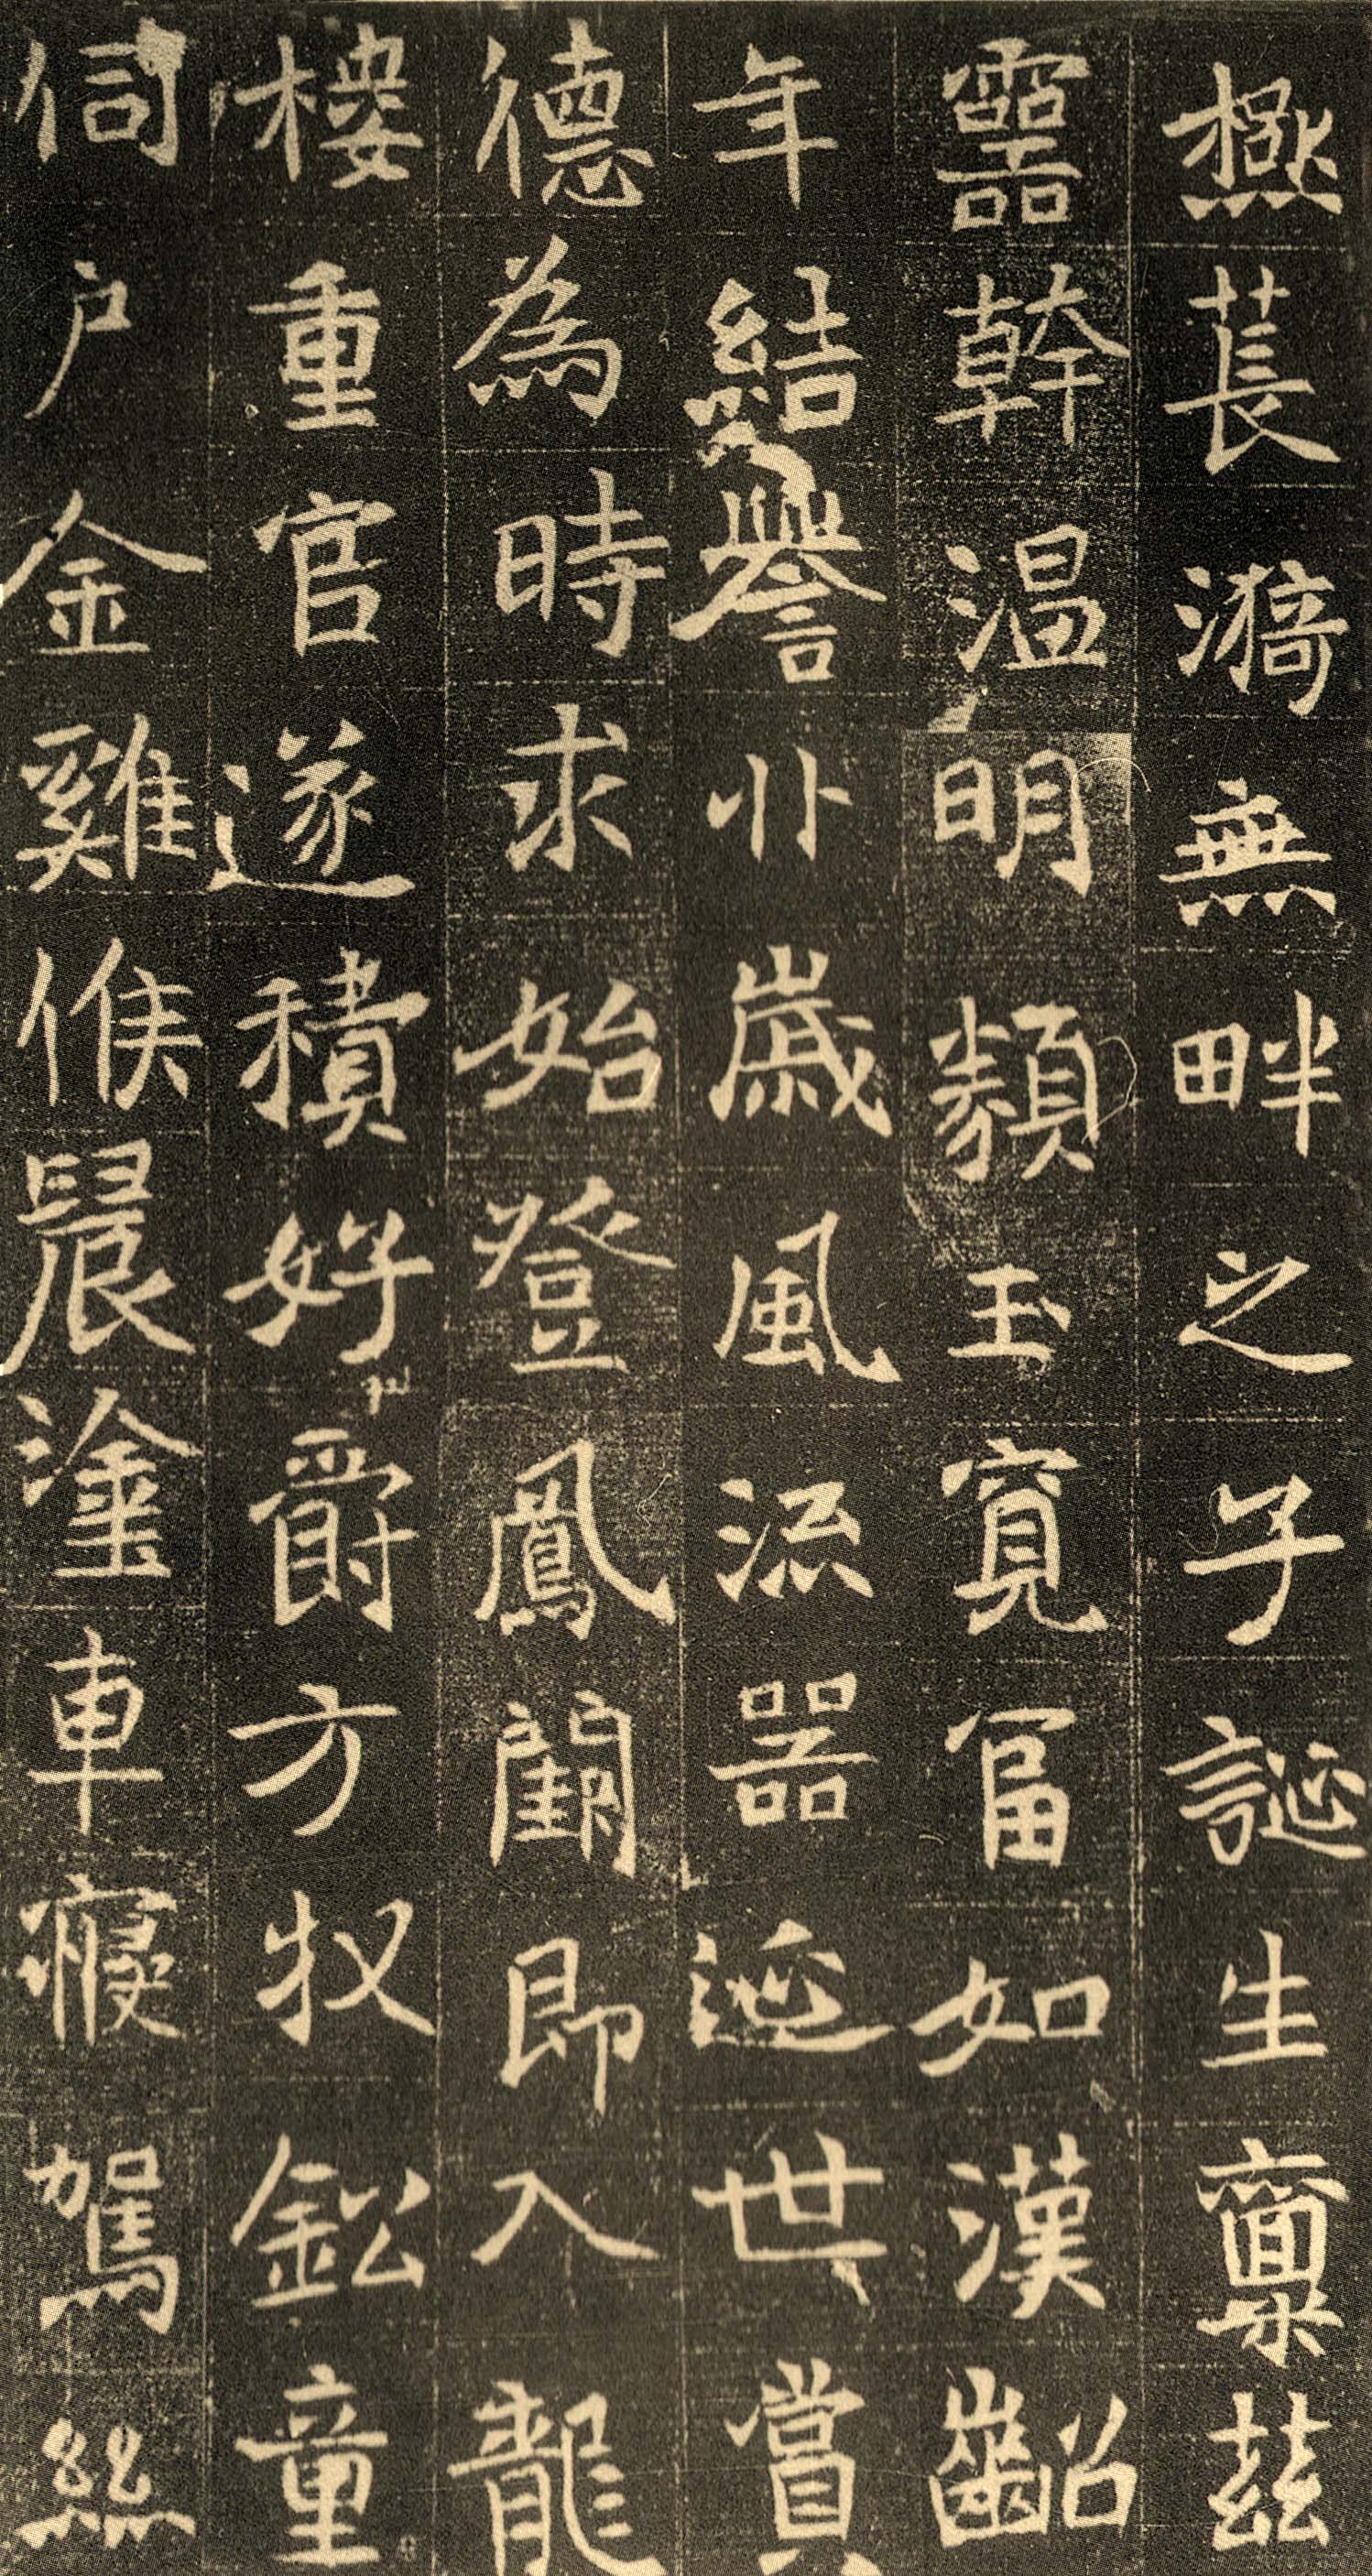 極萇漪無畔之子誕生稟茲
靈幹温明類玉寬富如漢齠
年結譽丱歲風流器延世賞
德為時求始登鳳即入龍
樓重官遂積好爵方牧鈆童
伺户金雞候晨塗車寢駕絲